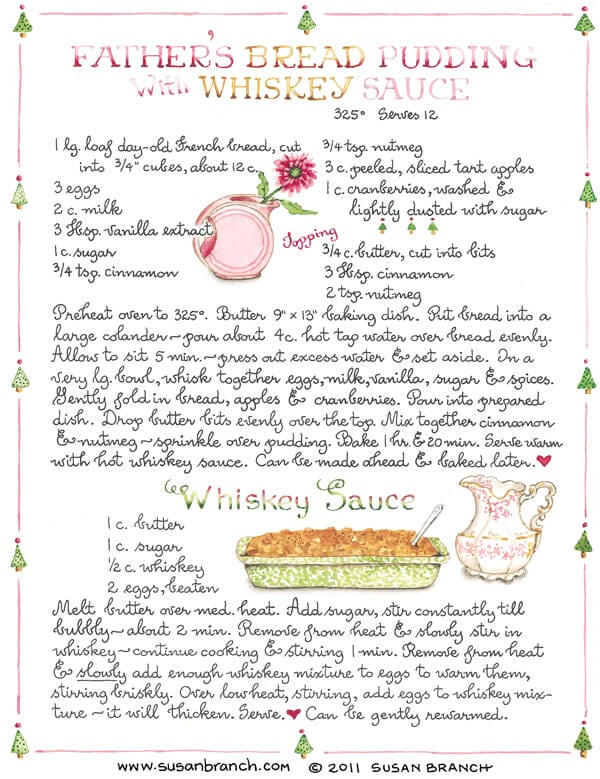 FATHER'S BREAD PUDDING
With WHISKEY SAUCE
325° Serves 12
1 lg. loaf day-old French bread, cut
into 3/4" cubes, about 12 c.
3 eggs
2 c. milk
3 Tbsp. vanilla extract
1 c. sugar
3/4 tsp. cinnamon
3/4 tsp. nutmeg
3 c. peeled, sliced tart apples
1 c. cranberries, washed &
lightly dusted with sugar
Topping
3/4 c. butter, cut into bits
3 Tbsp. cinnamon
2 tsp. nutmeg
Preheat oven to 325°. Butter 9" x 13" baking dish. Put bread into a
large colander ~ pour about 4 c. hot tap water over bread evenly.
Allow to sit 5 min. ~ press out excess water & set aside. In a
very lg. bowl, whisk together eggs, milk, vanilla, sugar & spices.
Gently fold in bread, apples & cranberries. Pour into prepared
dish. Drop butter bits evenly over the top. Mix together cinnamon
& nutmeg ~ sprinkle over pudding. Bake 1 hr. & 20 min. Serve warm
with hot whiskey sauce. Can be made ahead & baked later. ♥
Whiskey Sauce
1 c. butter
1 c. sugar
1/2 c. whiskey
2 eggs, beaten
Melt butter over med. heat. Add sugar, stir constantly till
bubbly ~ about 2 min. Remove from heat & slowly stir in
whiskey ~ continue cooking & stirring 1 min. Remove from heat
& slowly add enough whiskey mixture to eggs to warm them,
stirring briskly. Over low heat, stirring, add eggs to whiskey mix-
ture ~ it will thicken. Serve. ♥ Can be gently rewarmed.
www.susanbranch.com © 2011 SUSAN BRANCH